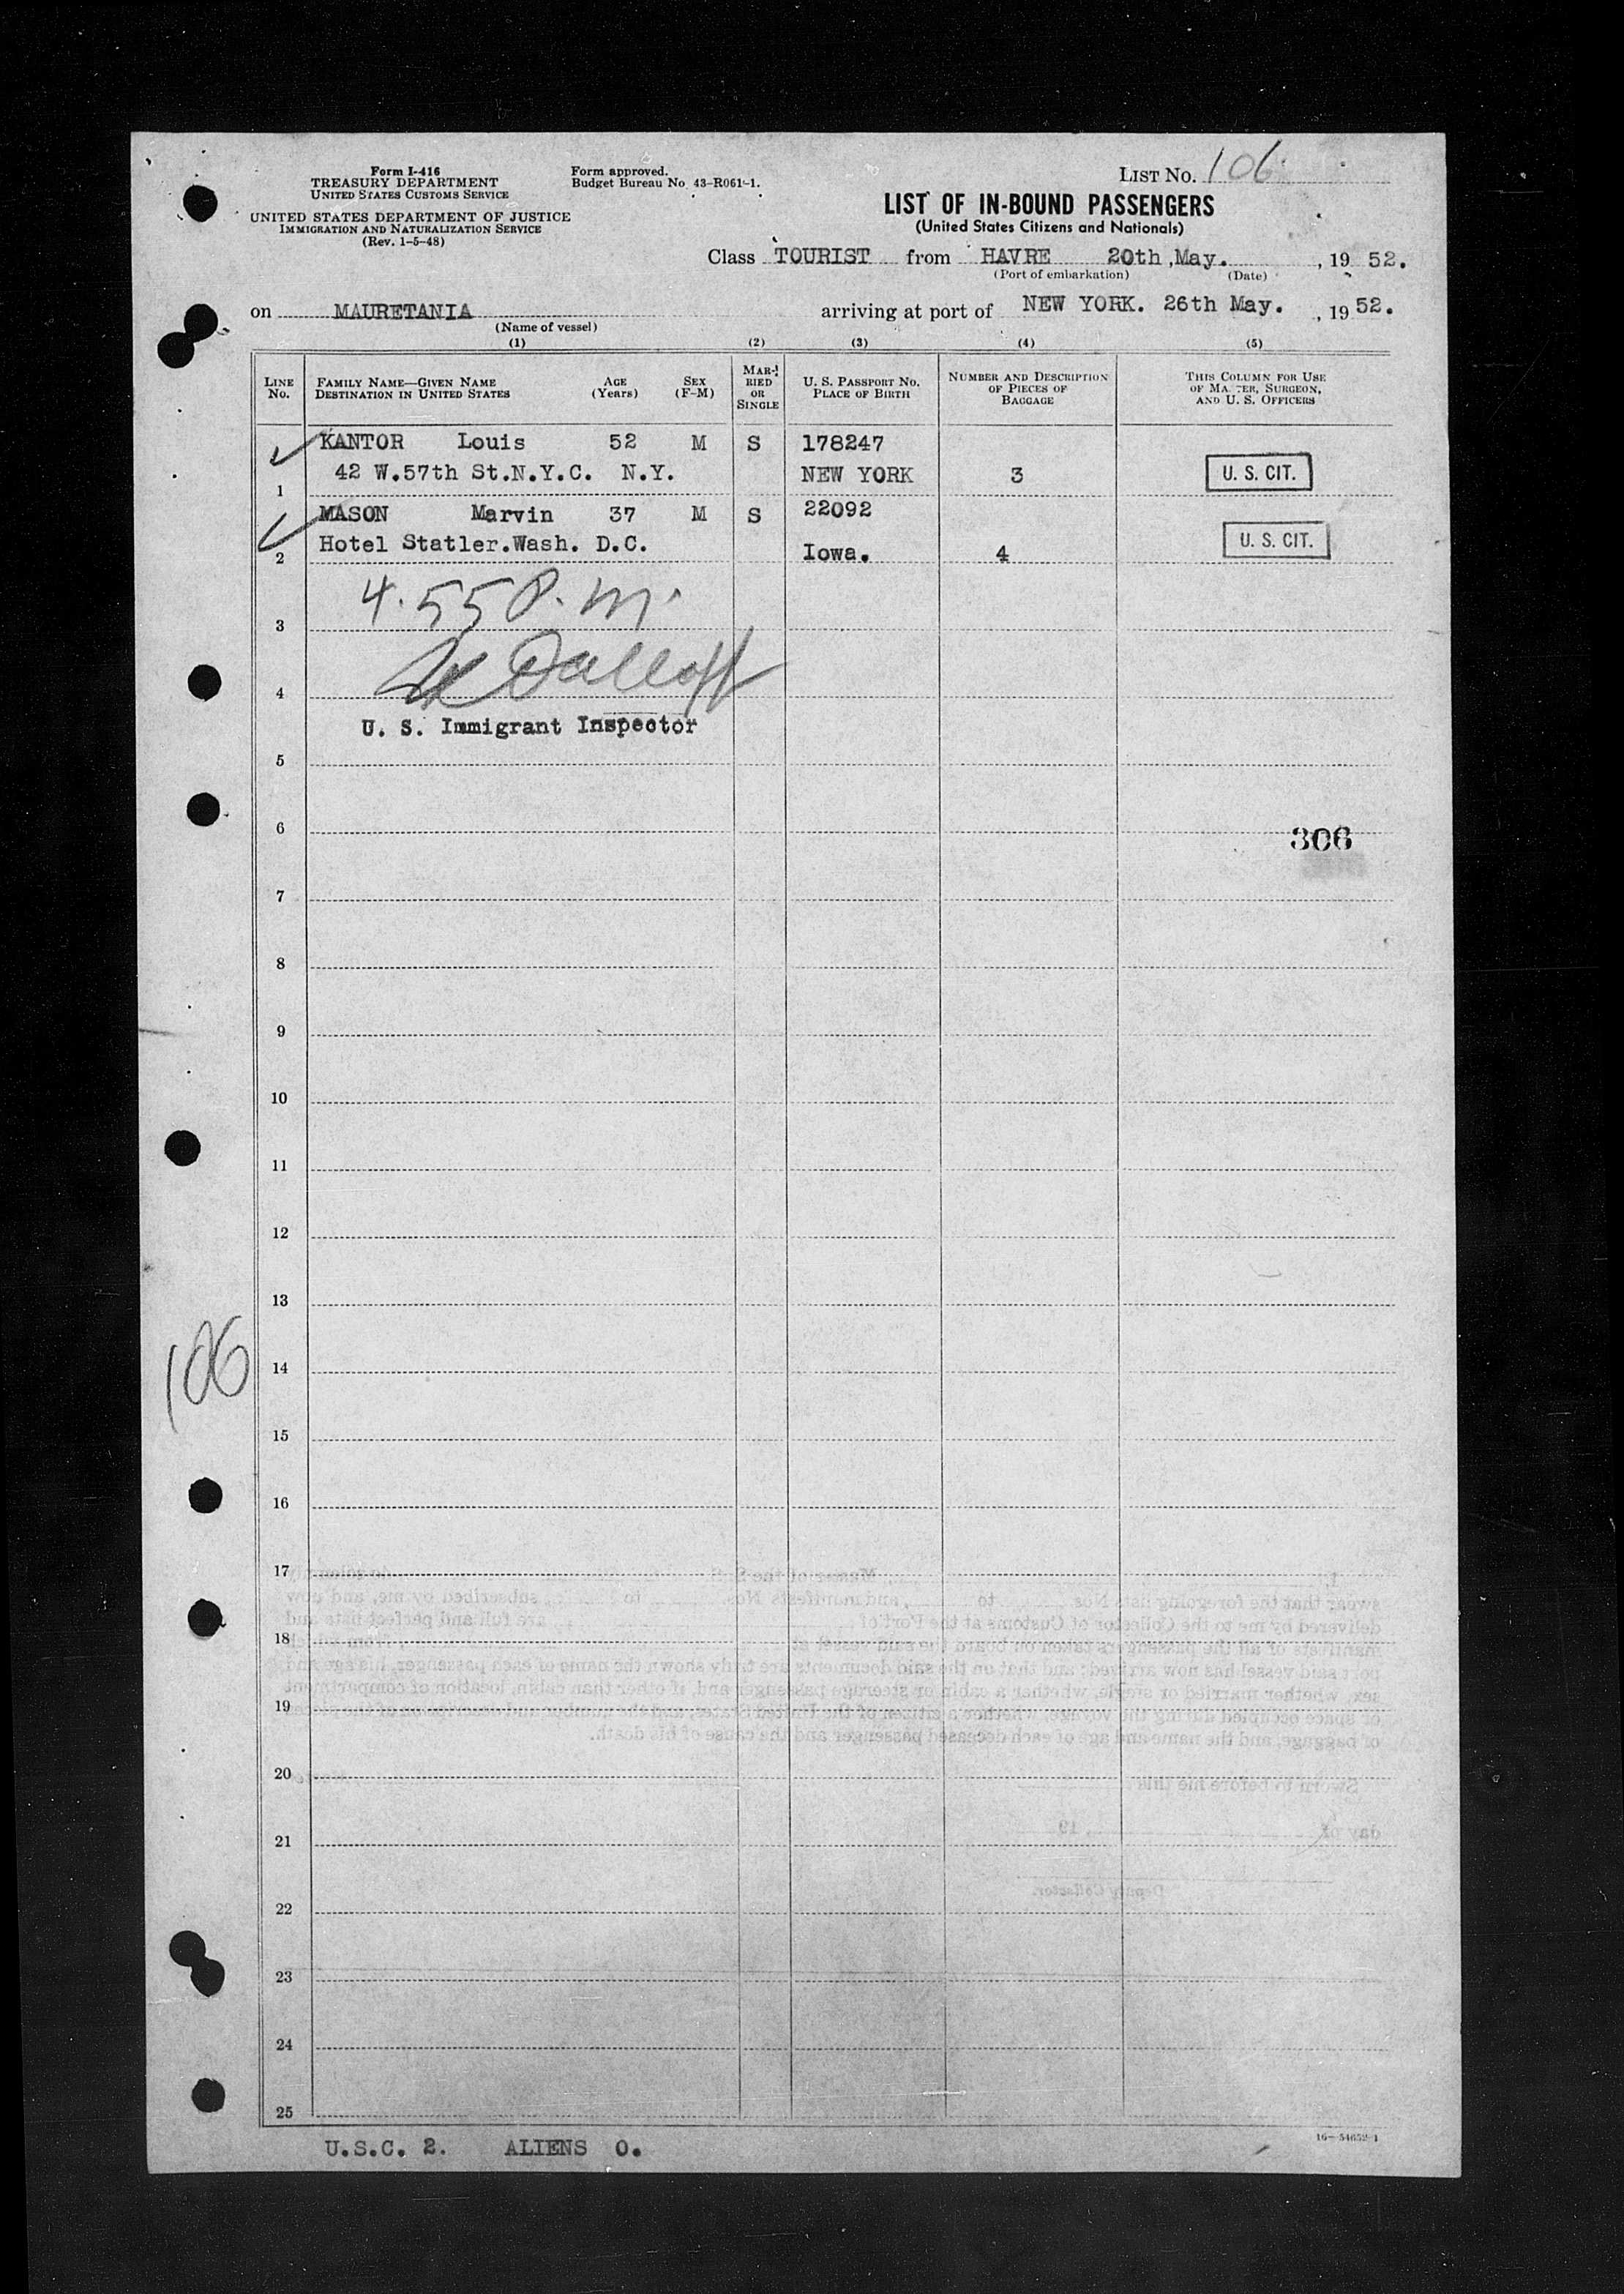 Form I-416
TREASURY DEPARTMENT
UNITED STATES CUSTOMS SERVICE
UNITED STATES DEPARTMENT OF JUSTICE
IMMIGRATION AND NATURALIZATION SERVICE
(Rev. 1-5-48)
Form approved.
Budget Bureau No. 43-R061-1.
LIST No. 106
LIST OF IN-BOUND PASSENGERS
(United States Citizens and Nationals)
Class TOURIST from HAVRE 20th,May. , 19 52.
(Port of embarkation) (Date)
on MAURETANIA arriving at port of NEW YORK. 26th May. , 19 52.
(Name of vessel)
(1) (2) (3) (4) (5)
LINE No.
FAMILY NAME—GIVEN NAME
DESTINATION IN UNITED STATES
AGE (Years)
SEX (F-M)
MARRIED OR SINGLE
U. S. PASSPORT No.
PLACE OF BIRTH
NUMBER AND DESCRIPTION
OF PIECES OF
BAGGAGE
THIS COLUMN FOR USE
OF MASTER, SURGEON,
AND U. S. OFFICERS
KANTOR Louis 52 M S 178247
1 42 W.57th St.N.Y.C. N.Y. NEW YORK 3 U. S. CIT.
MASON Marvin 37 M S 22092
2 Hotel Statler.Wash. D.C. Iowa. 4 U. S. CIT.
4.55 P.m.
3
4
U. S. Immigrant Inspector
5
6 306
7
8
9
10
11
12
13
106
14
15
16
17
18
19
20
21
22
23
24
25
U.S.C. 2. ALIENS 0.